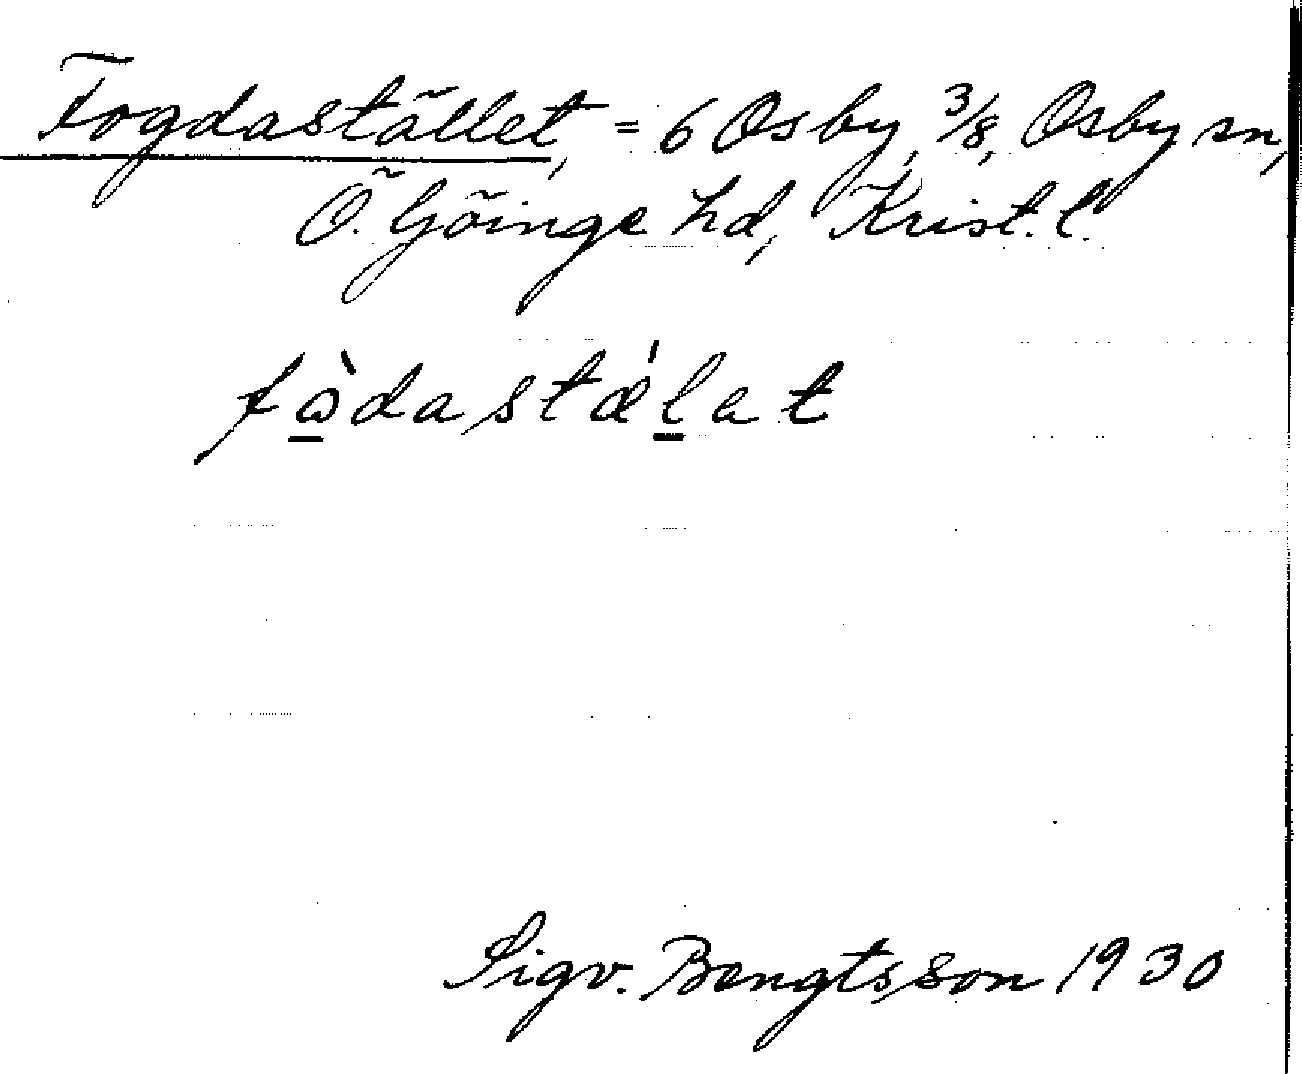 Fogdastället, = 6 Osby, 3/8, Osby sn,
Ö. Göinge hd, Krist. l.
få̱̀dastæ'ḻat
Sigv. Bengtsson 1930